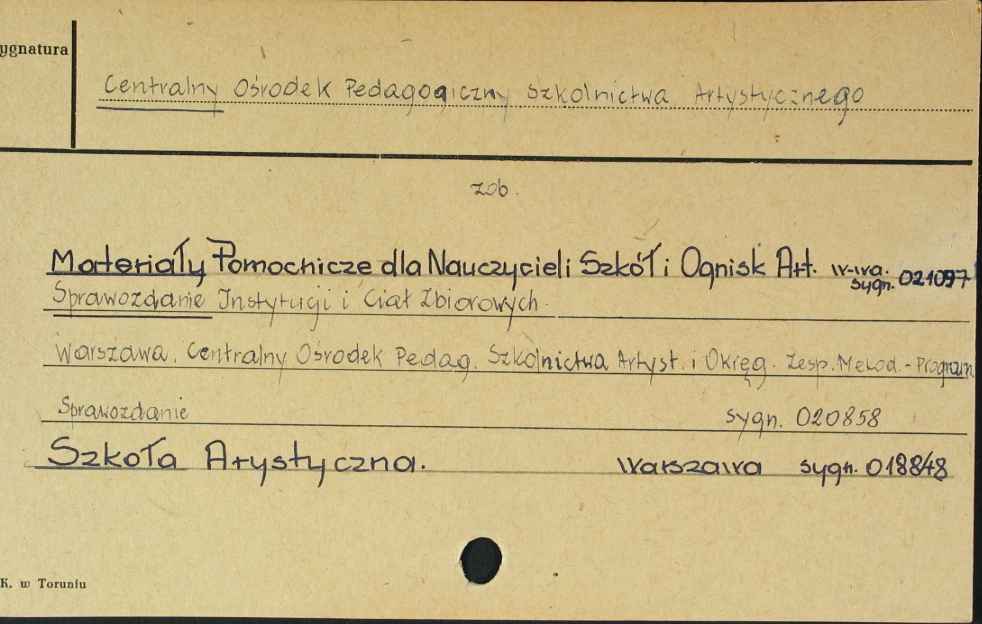 ygnatura
Centralny Ośrodek Pedagogiczny Szkolnictwa Artystycznego
zob.
Materiały Pomocnicze dla Nauczycieli Szkół i Ognisk Art. W-wa. sygn. 021097
Sprawozdanie Instytucji i Ciał Zbiorowych.
Warszawa. Centralny Ośrodek Pedag. Szkolnictwa Artyst. i Okręg. Zesp. Metod.-Program
Sprawozdanie sygn. 020858
Szkoła Artystyczna. Warszawa sygn. 018848
K. w Toruniu